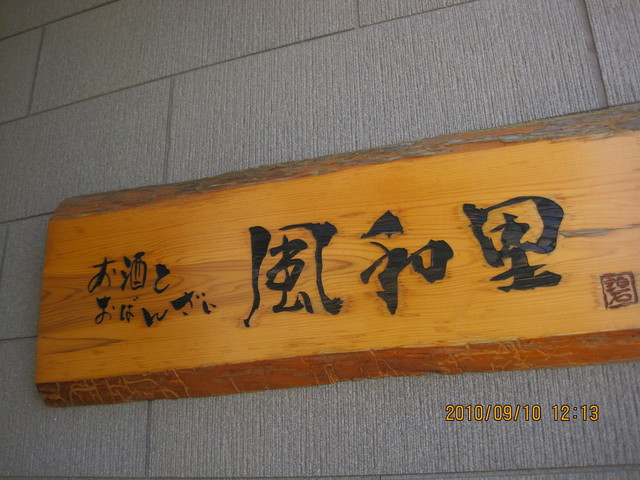 お酒と
おばんざい
風和里
2010/09/10 12:13